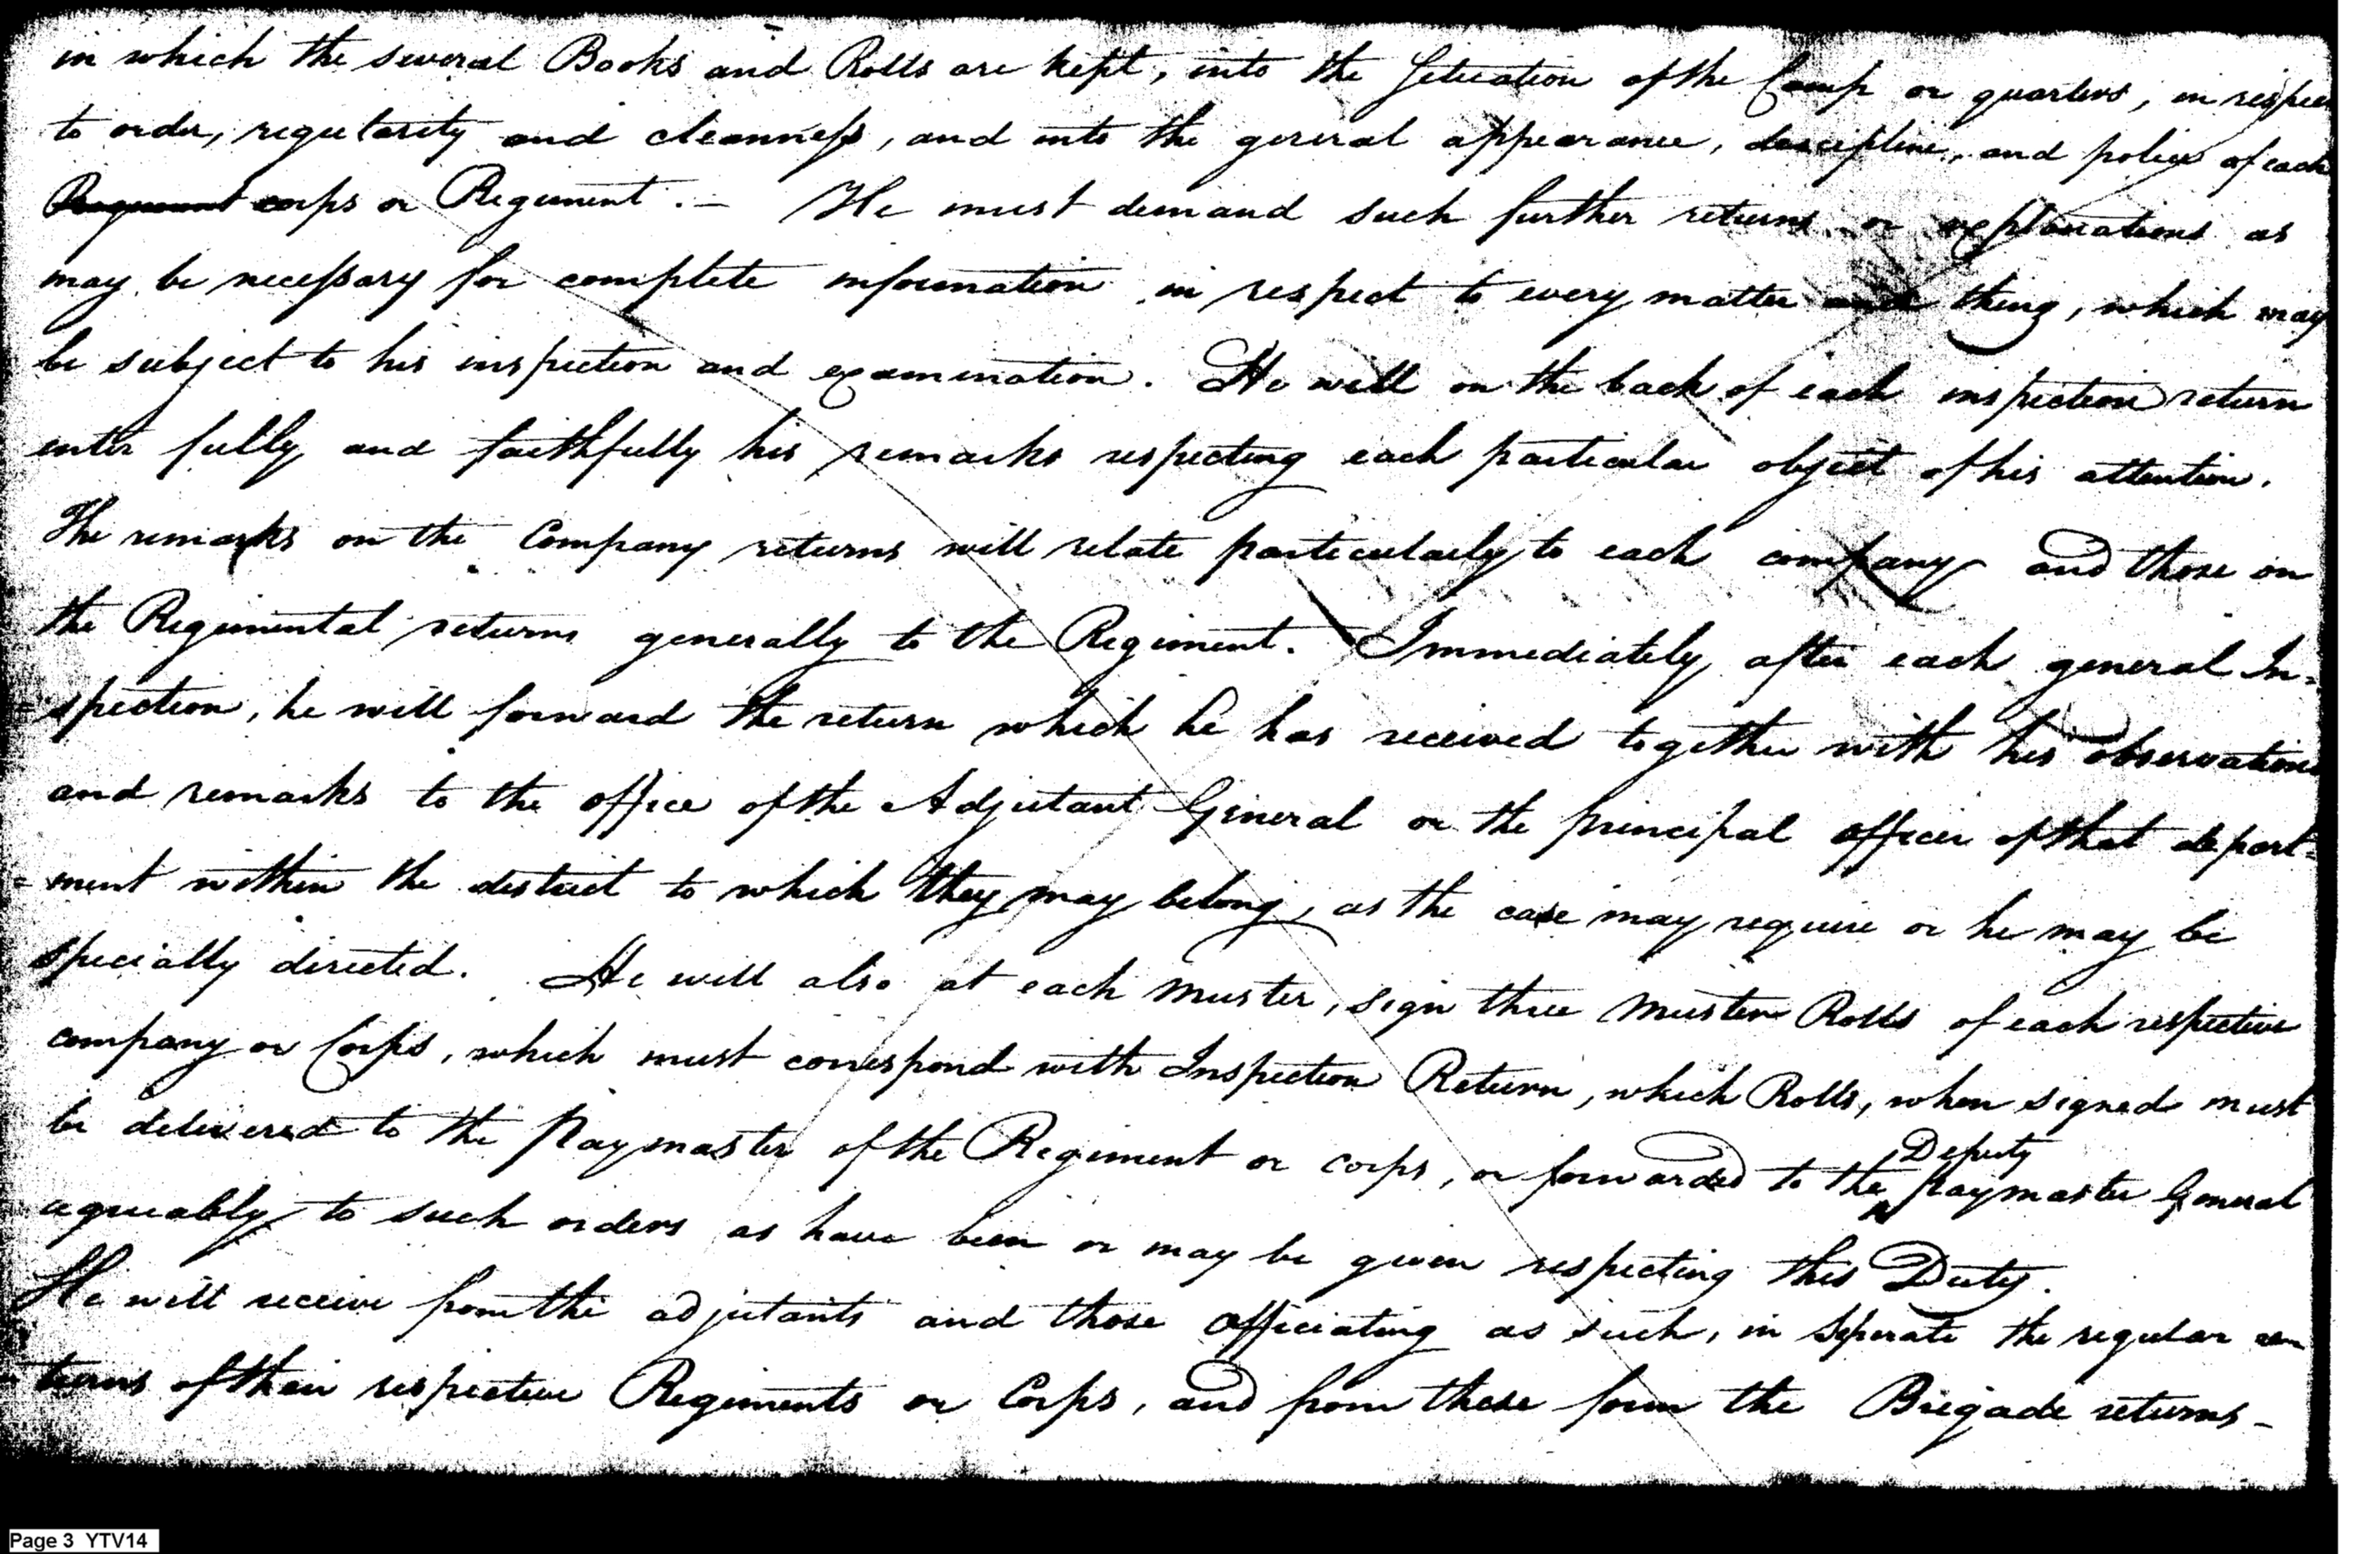 in which the several Books and Rolls are kept, into the Situation of the Camp or quarters, in respect
to order, regularity and cleanness, and into the general appearance, descipline, and police of each
Regiment corps or Regiment. — He must demand such further returns or explanations as
may be necessary for complete information in respect to every matter and thing, which may
be subject to his inspection and examination. He will on the back of each inspection return
enter fully and faithfully his remarks respecting each particular object of his attention.
The remarks on the Company returns will relate particularly to each company and those on
the Regimental returns generally to the Regiment. Immediately after each general In=
=spection, he will forward the return which he has received together with his observations
and remarks to the office of the Adjutant General or the principal officer of that depart=
=ment within the district to which they may belong, as the case may require or he may be
specially directed. He will also at each muster, sign three Muster Rolls of each respective
company or Corps, which must correspond with Inspection Return, which Rolls, when signed must
be delivered to the Paymaster of the Regiment or corps, or forwarded to the Deputy Paymaster General
agreeably to such orders as have been or may be given respecting this Duty.
He will receive from the adjutants and those officiating as such, in seperate the regular
=turns of their respective Regiments or Corps, and from these form the Brigade returns –
Page 3 YTV14